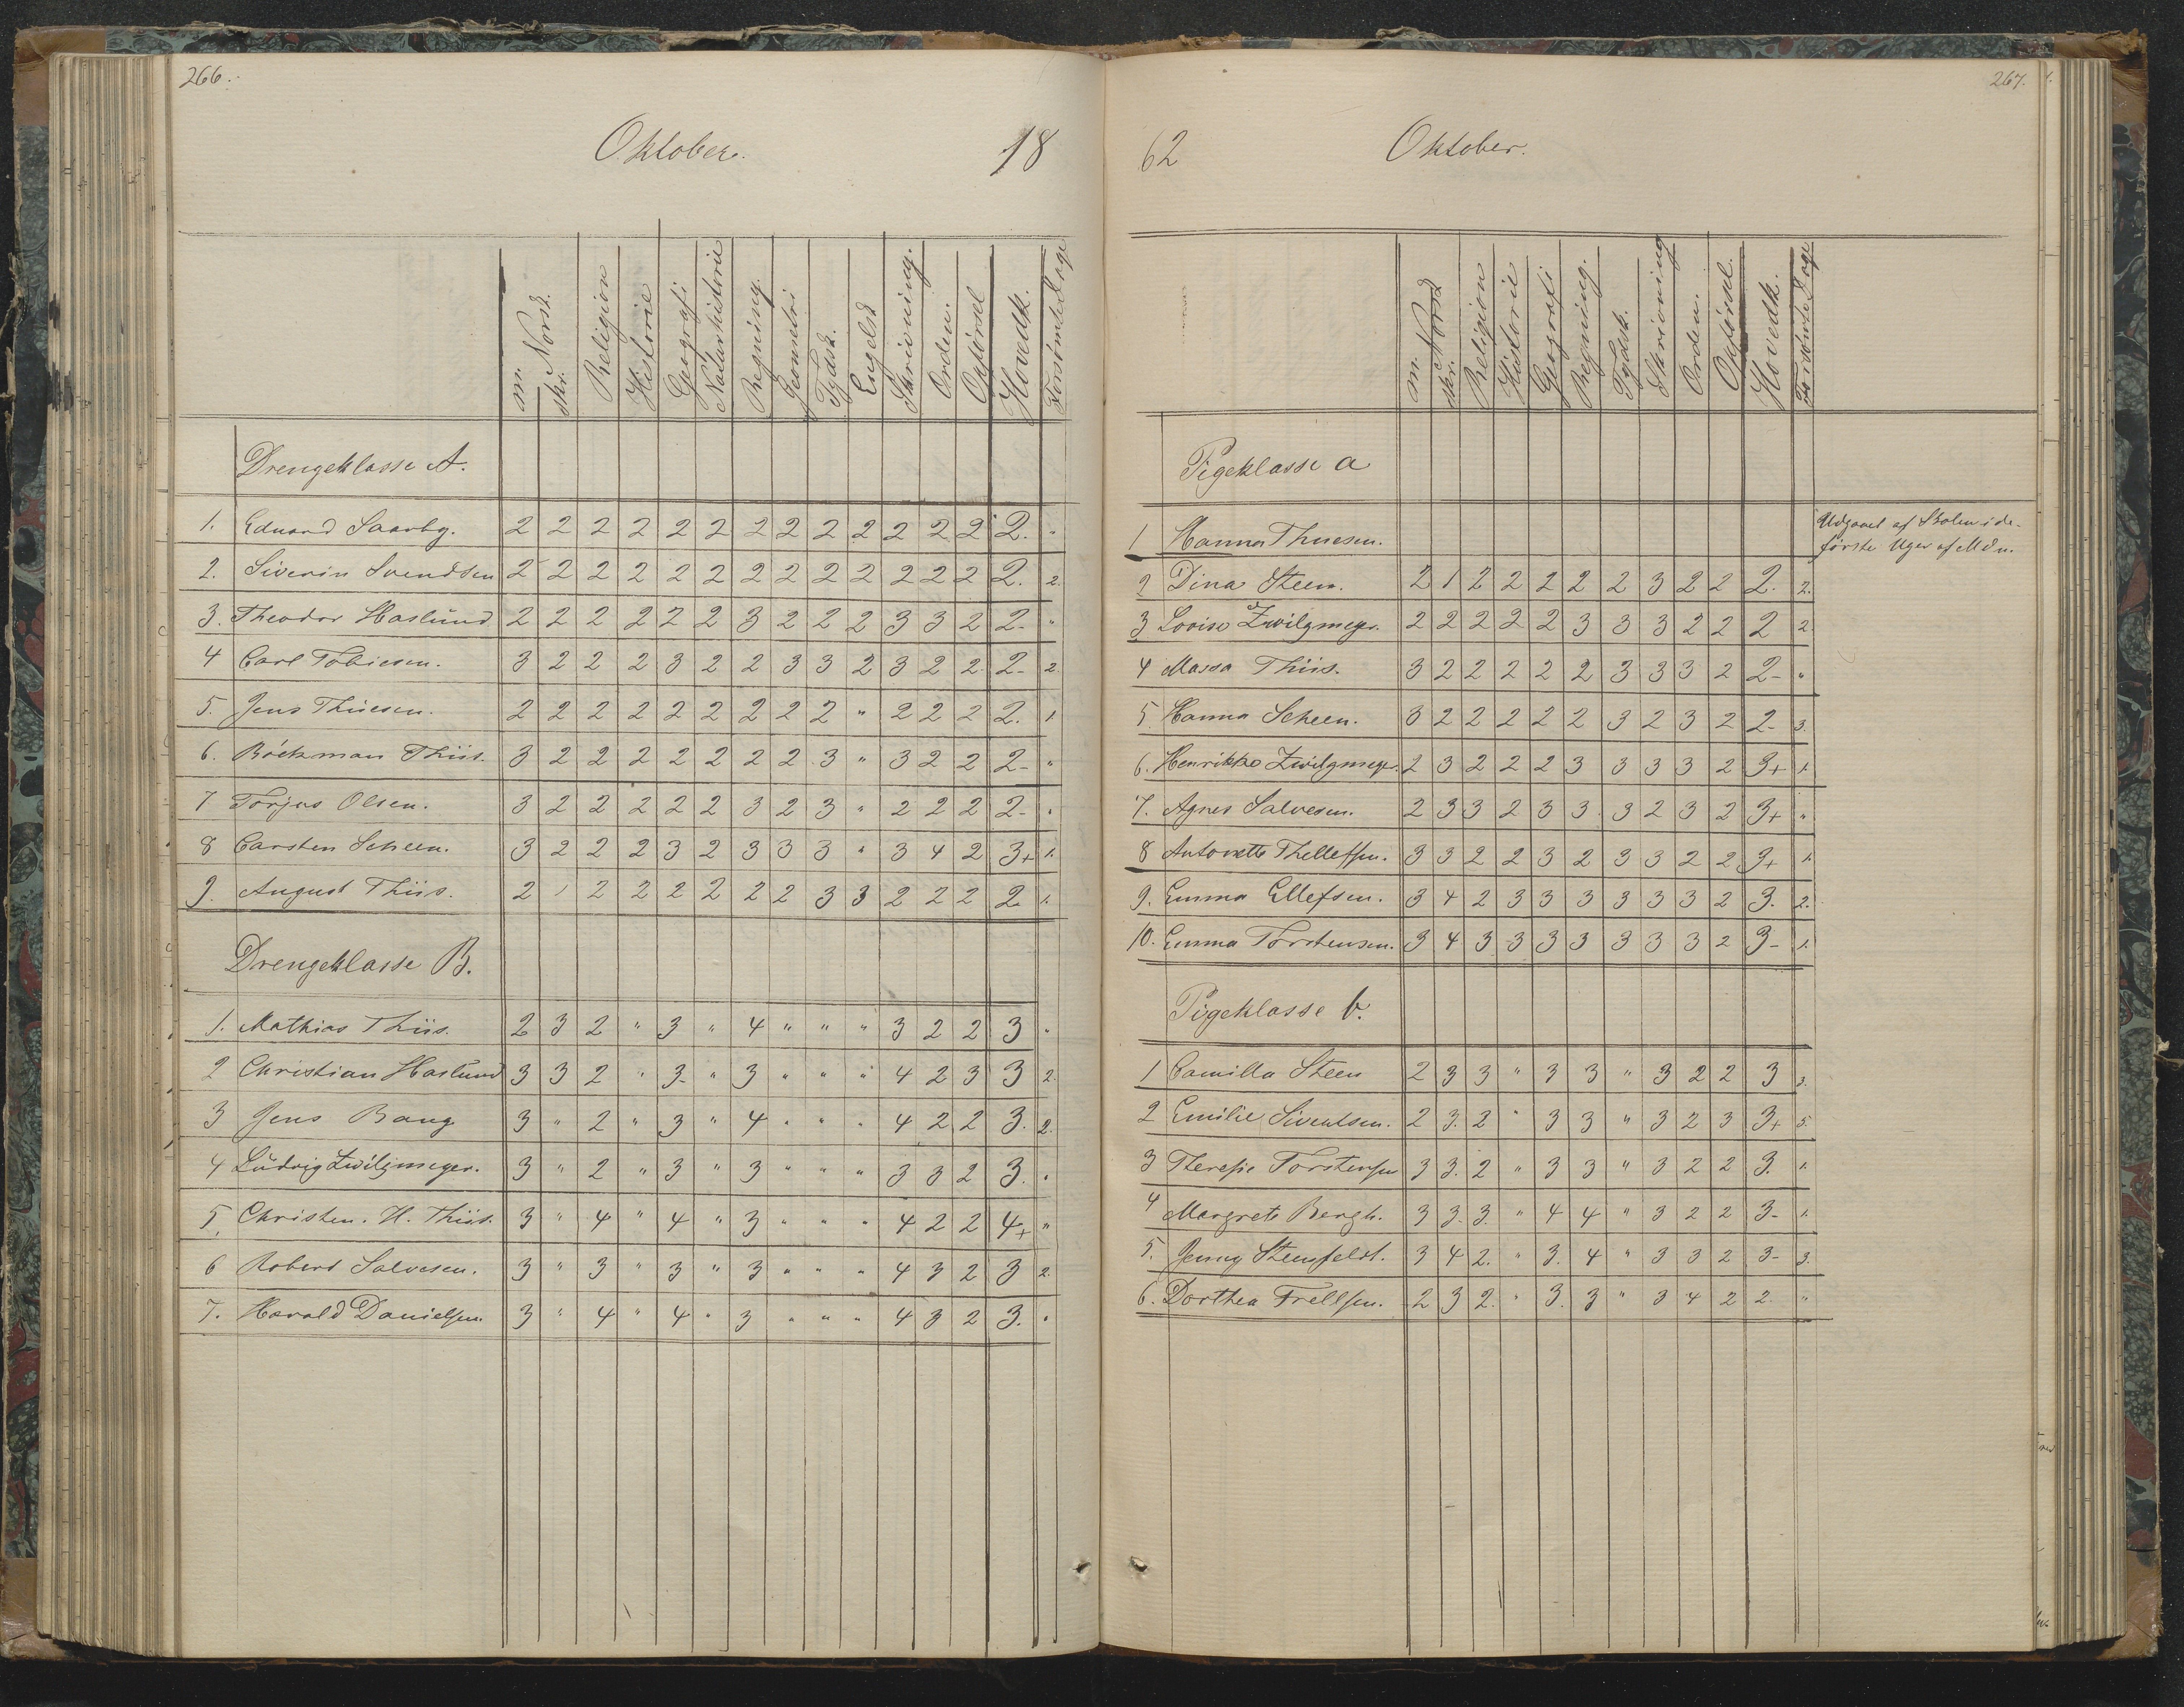 266.
Oktober. 18
m. Norsk. skr. Religion Historie Geografi Naturhistorie Regning. Geometri Tydsk. Engelsk Skrivning. Orden. Opförsel Hovedk. Forsömte Dage
Drengeklasse A.
1. Eduard Saarby. 2 2 2 2 2 2 2 2 2 2 2 2 2 2. "
2. Siverin Svendsen 2 2 2 2 2 2 2 2 2 2 2 2 2 2. 2.
3. Theodor Haslund 2 2 2 2 2 2 3 2 2 2 3 3 2 2- "
4 Carl Tobiesen. 3 2 2 2 3 2 2 3 3 2 3 2 2. 2- 2.
5. Jens Thuesen. 2 2 2 2 2 2 2 2 2 " 2 2 2 2. 1.
6. Böckman Thiis. 3 2 2 2 2 2 2 2 3 " 3 2 2 2- "
7 Torjus Olsen. 3 2 2 2 2 2 3 2 3 " 2 2 2 2- "
8 Carsten Scheen. 3 2 2 2 3 2 3 3 3 " 3 4 2 3+ 1.
9. August Thiis. 2 1 2 2 2 2 2 2 3 3 2 2 2 2. 1.
Drengeklasse B.
1. Mathias Thiis. 2 3 2 " 3 " 4 " " " 3 2 2 3 "
2 Christian Haslund 3 3 2 " 3- " 3 " " " 4 2 3 3 2.
3 Jens Bang 3 " 2 " 3 " 4 " " " 4 2 2 3. 2.
4 Ludvig Zwilgmeyer. 3 " 2 " 3 " 3 " " " 3 3 2 3. "
5. Christen. H. Thiis. 3 " 4 " 4 " 3 " " " 4 2 2 4+ "
6 Robert Salvesen. 3 " 3 " 3 " 3 " " " 4 3 2 3 2.
7. Harald Danielsen. 3 " 4 " 4 " 3 " " " 4 3 2 3. "
267.
62 Oktober.
m. Norsk skr. Religion Historie Geografi Regning. Tydsk. Skrivning Orden. Opförsel. Hovedk. Forsömte Dage
Pigeklasse a
1 Hanna Thuesen. Udgaaet af Skolen i de
förste Uger af Mdn.
2 Dina Steen. 2 1 2 2 2 2 2 3 2 2 2. 2.
3 Lovise Zwilgmeyer. 2 2 2 2 2 3 3 3 2 2 2 2.
4 Massa Thiis. 3 2 2 2 2 2 3 3 3 2 2- "
5. Hanna Scheen. 3 2 2 2 2 2 3 2 3 2 2- 3.
6. Henrikke Zwilgmeyer. 2 3 2 2 2 3 3 3 3 2 3+ 1.
7. Agnes Salvesen. 2 3 3 2 3 3 3 2 3 2 3+ "
8 Antonette Thellefsen. 3 3 2 2 3 2 3 3 2 2 3+ 1.
9. Emma Ellefsen. 3 4 2 3 3 3 3 3 3 2 3. 2.
10. Emma Torstensen. 3 4 3 3 3 3 3 3 3 2 3- 1.
Pigeklasse b.
1 Camilla Steen 2 3 3 " 3 3 " 3 2 2 3 3.
2 Emilie Siventsen. 2 3. 2 " 3 3 " 3 2 3 3+ 5.
3 Therese Torstensen 3 3. 2 " 3 3 " 3 2 2 3. 1.
4 Margrete Bergh. 3 3- 3. " 4 4 " 3 2 2 3- 1.
5. Jenny Stensfeldt. 3 4 2. " 3. 4 " 3 3 2 3- 3.
6. Dorthea Trellsen. 2 3 2. " 3. 3 " 3 4 2 2. "